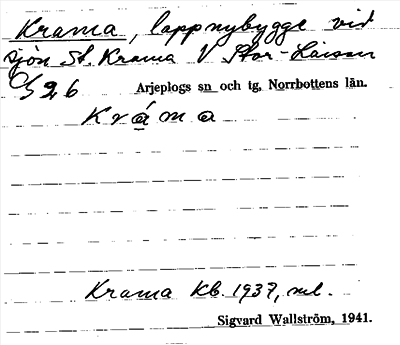 Krama, lappnybygge vid
sjön St. Krama V Stor-Laisan
Arjeplogs sn och tg, Norrbottens län.
Kráma
Krama Kb. 1937, ml.
Sigvard Wallström, 1941.